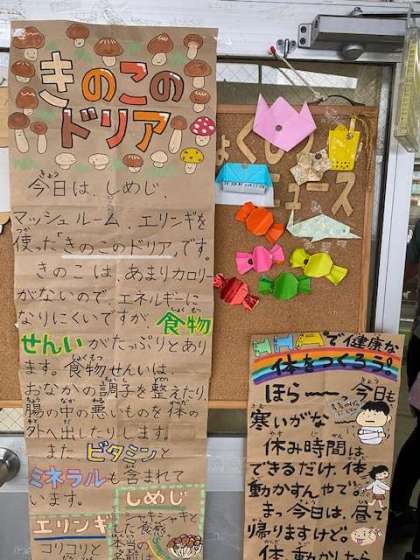 きのこの
ドリア
今日は、しめじ、
マッシュルーム、エリンギを
使った「きのこのドリア」です。
きのこは、あまりカロリー
がないので、エネルギーに
なりにくいですが、食物
せんいがたっぷりとあり
ます。食物せんいは、
おなかの調子を整えたり、
腸の中の悪いものを体の
外へ出したりします。
また、ビタミンと
ミネラルも含まれて
います。
エリンギ
コリコリと
しめじ
シャキシャキと
した食感
ニュース
で健康な
体をつくろう!
ほら〜 今日も
寒いがな
休み時間は
できるだけ、体
動かすんやで。
まっ、今日は、昼で
帰りますけど。
体、動かしちゃ